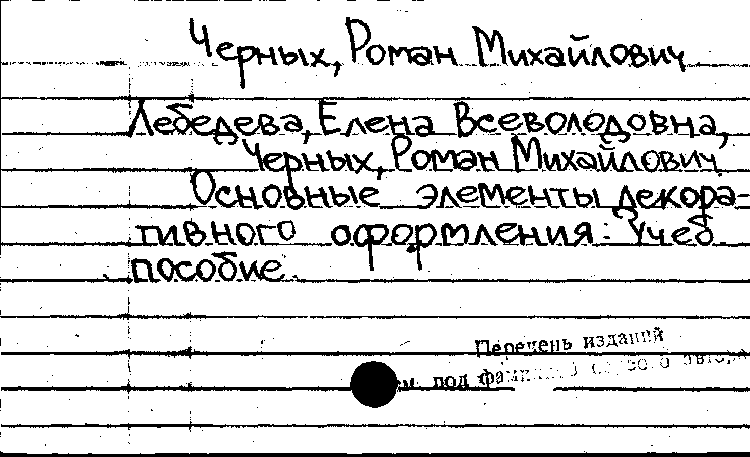 Черных, Роман Михайлович
Лебедева, Елена Всеволодовна,
Черных, Роман Михайлович
Основные элементы декора-
тивного оформления: Учеб.
пособие.
Перечень изданий
под